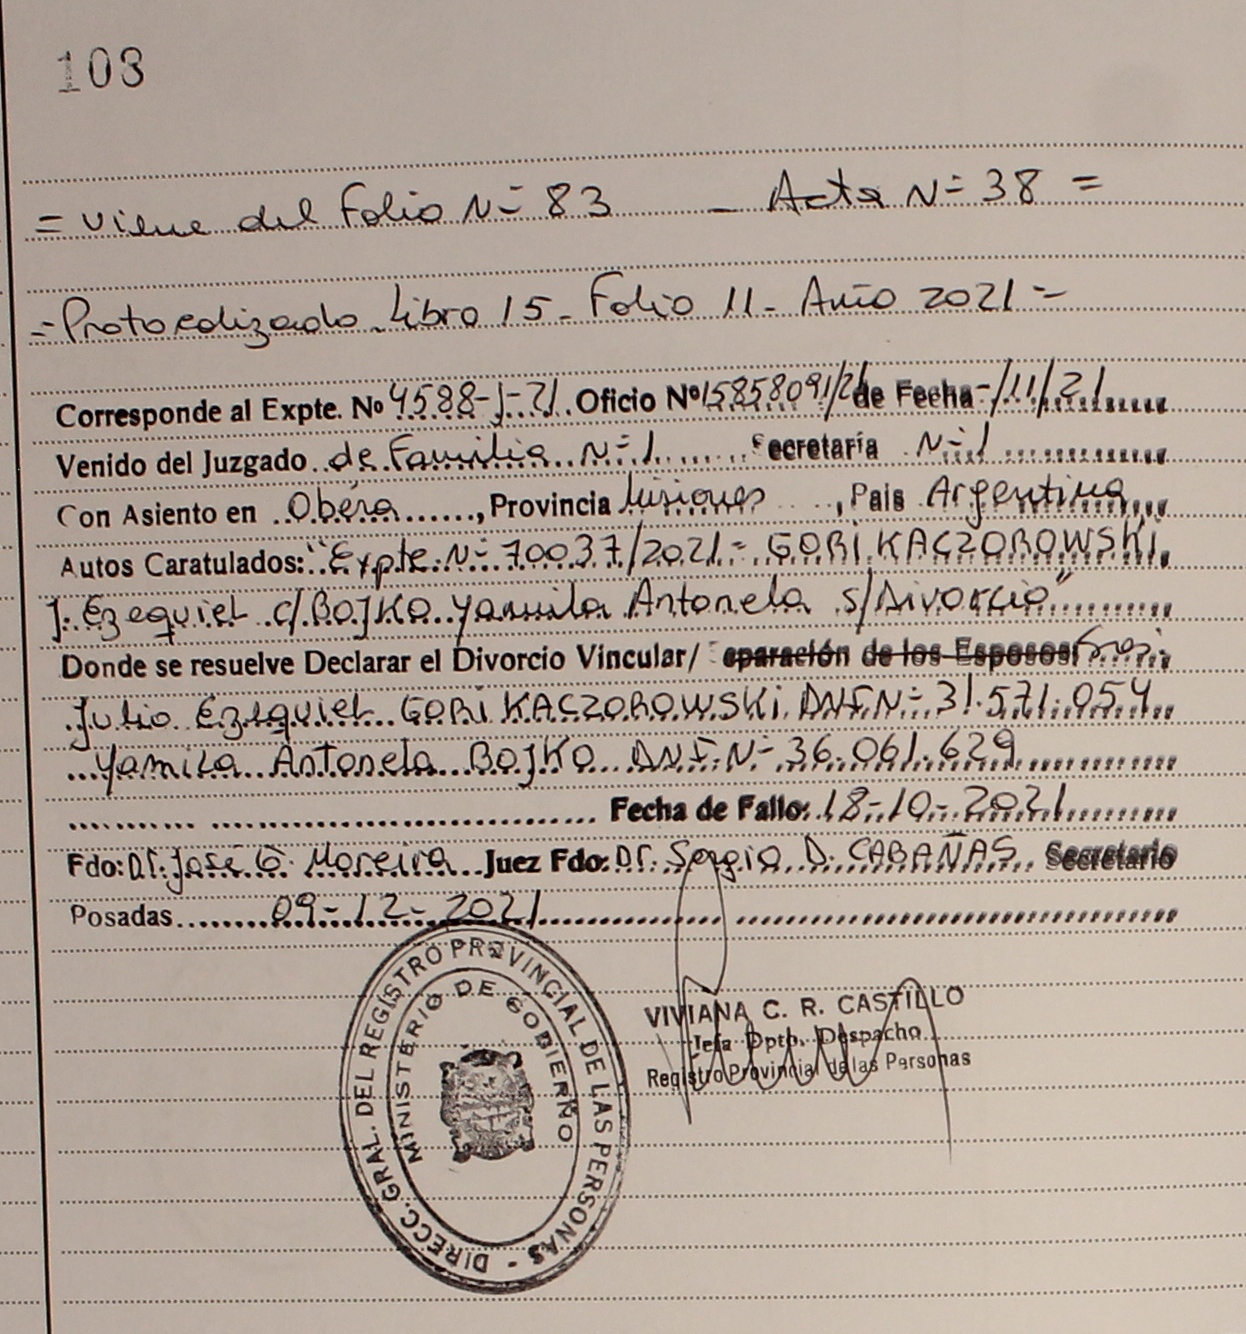 103
= Viene del Folio Nº 83 - Acta Nº 38 =
= Protocolizado Libro 15 - Folio 11 - Año 2021 =
Corresponde al Expte. Nº 4588-J-21 Oficio Nº 15858091/21 de Fecha -/11/21
Venido del Juzgado de Familia Nº 1 Secretaría Nº 1
Con Asiento en Obéra, Provincia Misiones, Pais Argentina
Autos Caratulados: "Expte Nº 70037/2021 - GORI KACZOROWSKI,
J. Ezequiel c/ BOJKO Yamila Antonela s/ Divorcio"
Donde se resuelve Declarar el Divorcio Vincular/ Separación de los Esposos
Julio Ezequiel GORI KACZOROWSKI DNI Nº 31.571.054
Yamila Antonela BOJKO DNI Nº 36.061.629
Fecha de Fallo: 18-10-2021
Fdo: Dr. José G. Moreira Juez Fdo: Dr. Sergio D. CABAÑAS Secretario
Posadas 09-12-2021
DIRECC. GRAL. DEL REGISTRO PROVINCIAL DE LAS PERSONAS -
MINISTERIO DE GOBIERNO
VIVIANA C. R. CASTILLO
Jefa Dpto. Despacho
Registro Provincial de las Personas